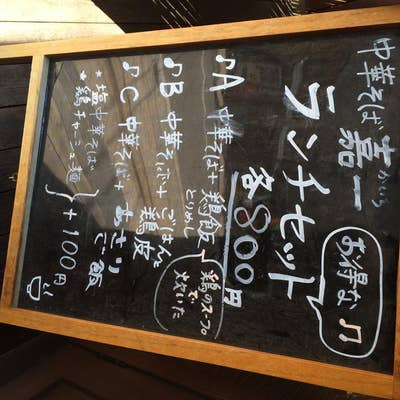 中華そば 嘉一
かいち
お得な♫
ランチセット
各800円
♪A 中華そば+鶏飯
とりめし
鶏のスープで
炊いた
♪B 中華そば+ごはんと
鶏皮
♪C 中華そば+あさり
ご飯
★塩中華そば
★鶏チャーシュー麺
+100円